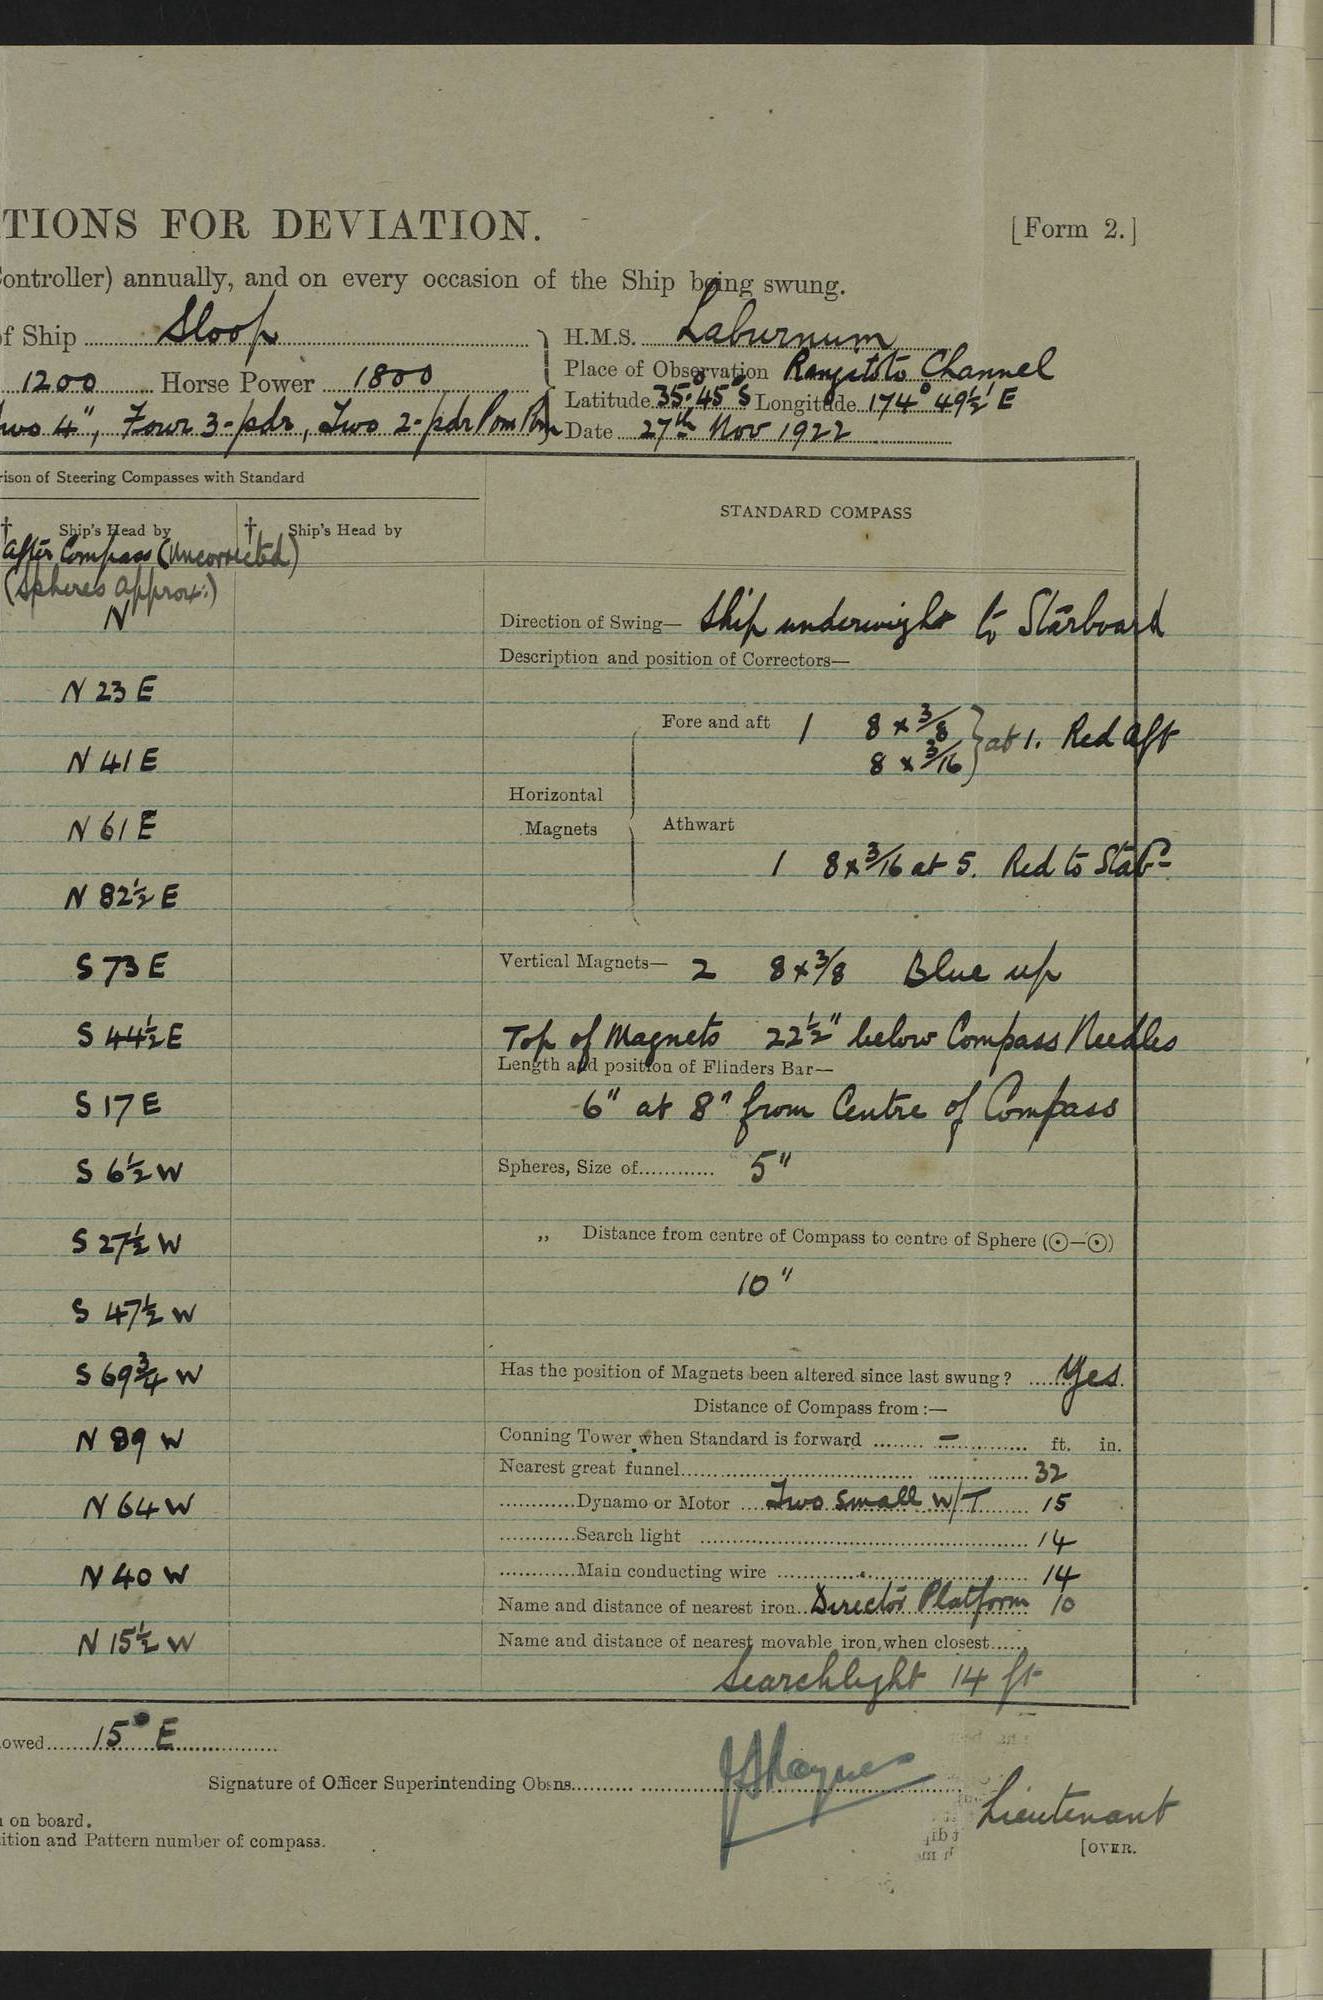 TIONS FOR DEVIATION.
[Form 2.]
Controller) annually, and on every occasion of the Ship being swung.
of Ship Sloop
H.M.S. Laburnum
Place of Observation Rangitoto Channel
1200 Horse Power 1800
Latitude 35° 45' S Longitude 174° 49½' E
Two 4", Four 3-pdr, Two 2-pdr Pom Pom
Date 27th Nov 1922
rison of Steering Compasses with Standard
STANDARD COMPASS
† Ship's Head by
† Ship's Head by
After Compass (Uncorrected)
(Spheres approx:)
N
N 23 E
N 41 E
N 61 E
N 82½ E
S 73 E
S 44½ E
S 17 E
S 6½ W
S 27½ W
S 47½ W
S 69¾ W
N 89 W
N 64 W
N 40 W
N 15½ W
Direction of Swing— Ship underweigh to Starboard
Description and position of Correctors—
Fore and aft 1 8 × 3/8
8 × 3/16 } at 1. Red aft
Horizontal
Magnets
Athwart
1 8 × 3/16 at 5. Red to Starbd
Vertical Magnets— 2 8 × 3/8 Blue up
Top of Magnets 22½" below Compass Needles
Length and position of Flinders Bar—
6" at 8" from Centre of Compass
Spheres, Size of 5"
„ Distance from centre of Compass to centre of Sphere (⊙—⊙)
10"
Has the position of Magnets been altered since last swung? Yes
Distance of Compass from :—
Conning Tower when Standard is forward – ft. in.
Nearest great funnel 32
Dynamo or Motor Two small W/T 15
Search light 14
Main conducting wire 14
Name and distance of nearest iron Director Platform 10
Name and distance of nearest movable iron, when closest
Searchlight 14 ft
owed 15° E
Signature of Officer Superintending Obsns.
Lieutenant
on board.
ition and Pattern number of compass.
[OVER.